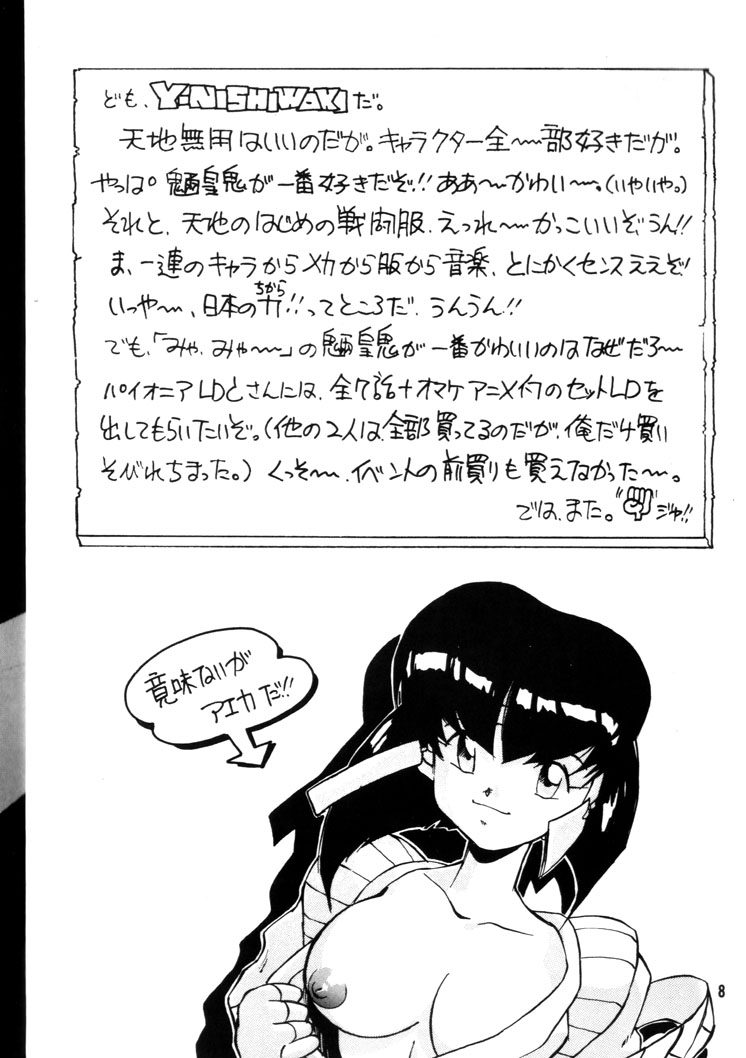 ども、Y・NISHIWAKIだ。
天地無用はいいのだが。キャラクター全〜部好きだが。
やっぱ魎皇鬼が一番好きだぞ!!ああ〜かわい〜。(いやいや。)
それと、天地のはじめの戦闘服、えっれ〜かっこいいぞうん!!
ま、一連のキャラからメカから服から音楽、とにかくセンスええぞ
いっや〜、日本の力!!ってところだ、うんうん!!
ちから
でも、「みゃ、みゃ〜」の魎皇鬼が一番かわいいのはなぜだろ〜
パイオニアLDとさんには、全7話+オマケアニメイクのセットLDを
出してもらいたいぞ。(他の2人は、全部買ってるのだが、俺だけ買い
そびれちまった。)くっそ〜、イベントの前買りも買えなかった〜。
では、また。""ジャ!!
意味ないが
アエカだ!!
8